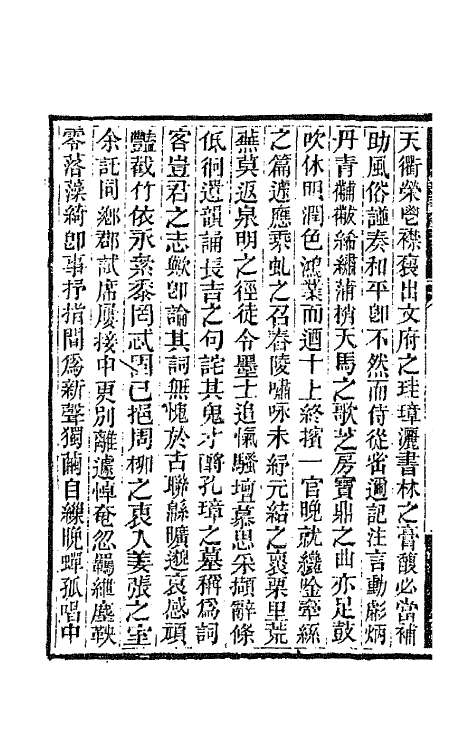 天衢榮鬯襟褏出文府之珪璋灑書林之膏馥必當補
助風俗謹奏和平卽不然而侍從密邇記注言動彪炳
丹青黼黻絺繡蒲梢天馬之歌芝房寶鼎之曲亦足鼓
吹休明潤色鴻業而迺十上終擯一官晚就纔唫窣綵
之篇遽應乘虬之召舂陵嘯咏未紓元結之襄栗里荒
蕪莫返泉明之徑徒令墨士追愾騷壇慕思采擷辭條
低徊遺韻誦長吉之句詫其鬼才酹孔璋之墓稱爲詞
客豈君之志歟卽論其詞無愧於古聯緜曠邈哀感頑
豔截竹依永絫黍罔忒固已挹周柳之袂入姜張之室
余託同鄉郡試席屢接中更別離遽悼奄忽羈紲塵鞅
零落藻綺卽事抒指閒爲新聲獨繭自繅晚蟬孤唱中